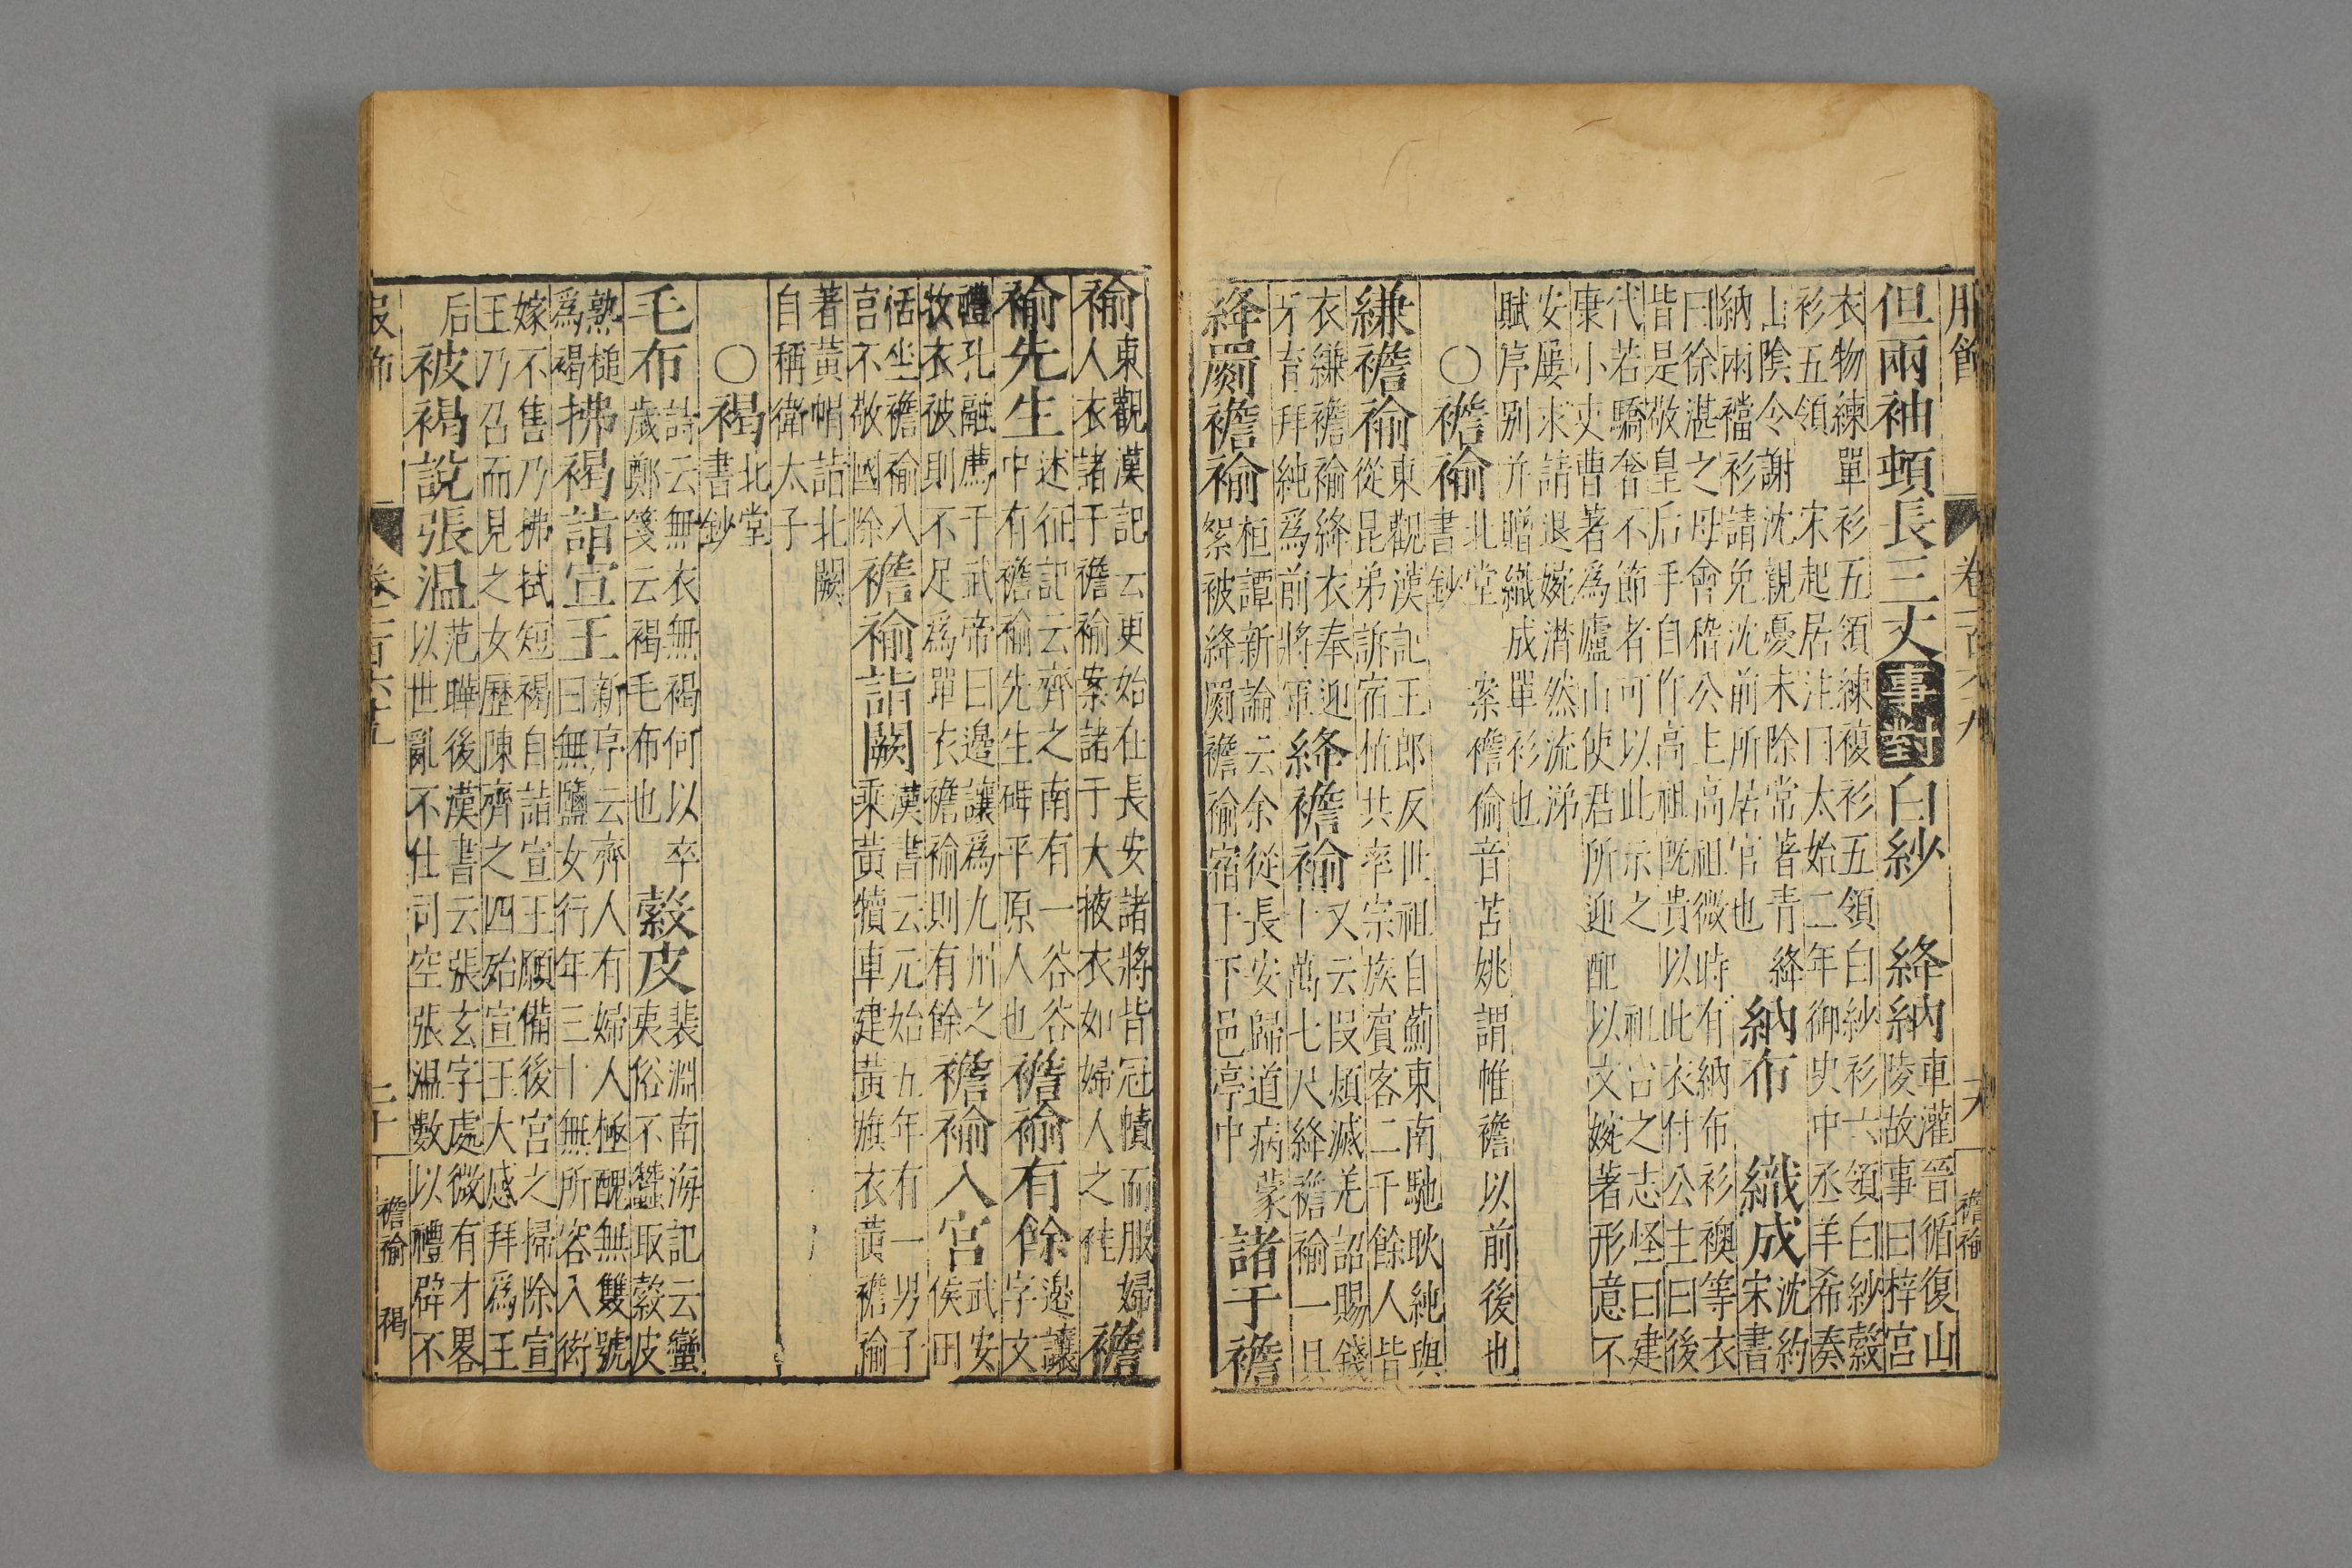 服飾 卷一百六十九 襜褕
但兩袖頓長三丈 事對 白紗 絳納 車灌晉循復山
陵故事曰梓宮
衣物練單衫五領練複衫五領白紗衫六領白紗縠
衫五領 宋起居注曰太始二年御史中丞羊希奏
山陰令謝沈親憂未除常著青絳
納兩襠衫請免沈前所居官也 納布 織成 沈約
宋書
曰徐湛之母會稽公主高祖微時有納布衫襖等衣
皆是敬皇后手自作高祖既貴以此衣付公主曰後
代若驕奢不節者可以此示之 祖台之志怪曰建
康小吏曹著為廬山使君所迎配以女婉著形意不
安屢求請退婉潸然流涕
賦序别并贈織成單衫也
○襜褕 北堂
書鈔 案襜偷音苫姚謂帷襜以前後也
縑襜褕 東觀漢記王郎反世祖自薊東南馳耿純與
從昆弟訴宿植共率宗族賓客二千餘人皆
衣縑襜褕絳衣奉迎
牙育拜純為前將軍 絳襜褕 又云段熲滅羌詔賜錢
十萬七尺絳襜褕一具
絳罽襜褕 桓譚新論云余從長安歸道病蒙
絮被絳罽襜褕宿于下邑亭中 諸于襜
褕 東觀漢記云更始在長安諸將皆冠幘而服婦
人衣諸于襜褕案諸于大掖衣如婦人之袿 襜
褕先生 述征記云齊之南有一谷谷
中有襜褕先生碑平原人也 襜褕有餘 邊讓
字文
禮孔融薦于武帝曰邊讓為九州之
牧衣被則不足為單衣襜褕則有餘 襜褕入宮 武安
侯田
恬坐襜褕入
宮不敬國除 襜褕詣闕 漢書云元始五年有一男子
乘黃犢車建黃旗衣黃襜褕
著黃帽詣北闕
自稱衛太子
○褐 北堂
書鈔
毛布 詩云無衣無褐何以卒
歲鄭箋云褐毛布也 縠皮 裴淵南海記云蠻
夷俗不蠶取縠皮
熟槌
為褐 拂褐詣宣王 新序云齊人有婦人極醜無雙號
曰無鹽女行年三十無所容入衒
嫁不售乃拂拭短褐自詣宣王願備後宮之掃除宣
王乃召而見之女歷陳齊之四殆宣王大感拜為王
后 被褐說張溫 范曄後漢書云張玄字處微有才畧
以世亂不仕司空張溫數以禮辟不
服飾 卷一百六十五 二十 襜褕 褐